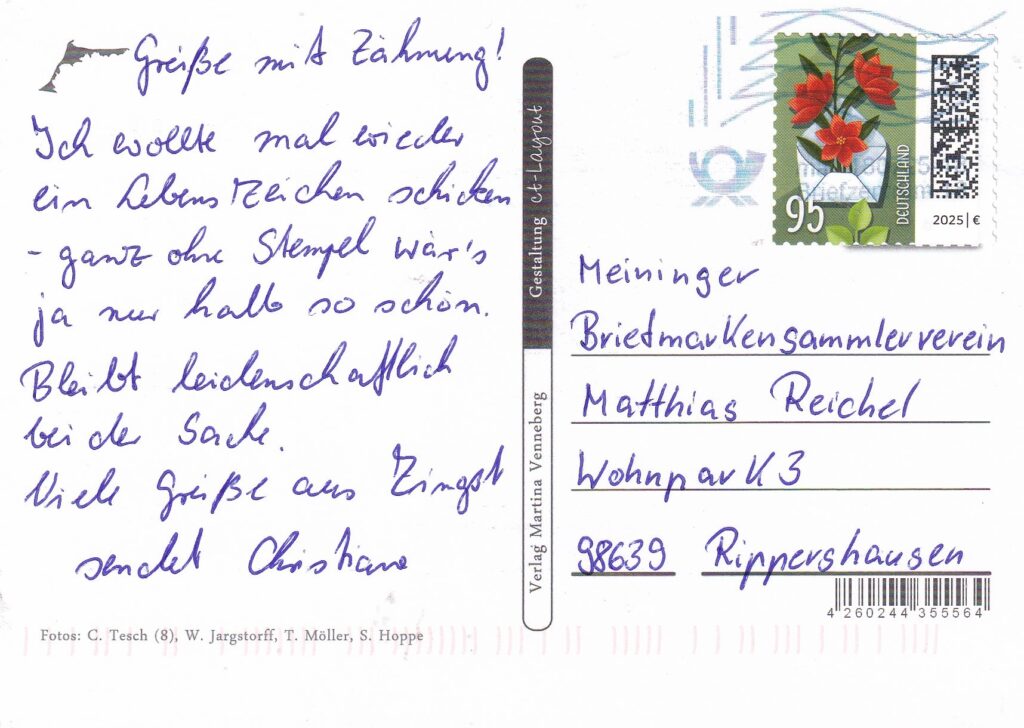 Grüße mit Zähnung!
Ich wollte mal wieder
ein Lebenszeichen schicken
- ganz ohne Stempel wär's
ja nur halb so schön.
Bleibt leidenschaftlich
bei der Sache.
Viele Grüße aus Zingst
sendet Christiane
Fotos: C. Tesch (8), W. Jargstorff, T. Möller, S. Hoppe
Verlag Martina Venneberg
Gestaltung ct-Layout
95
DEUTSCHLAND
2025 | €
Briefzentrum
Meininger
Briefmarkensammlerverein
Matthias Reichel
Wohnpark 3
98639 Rippershausen
4 260244 355564